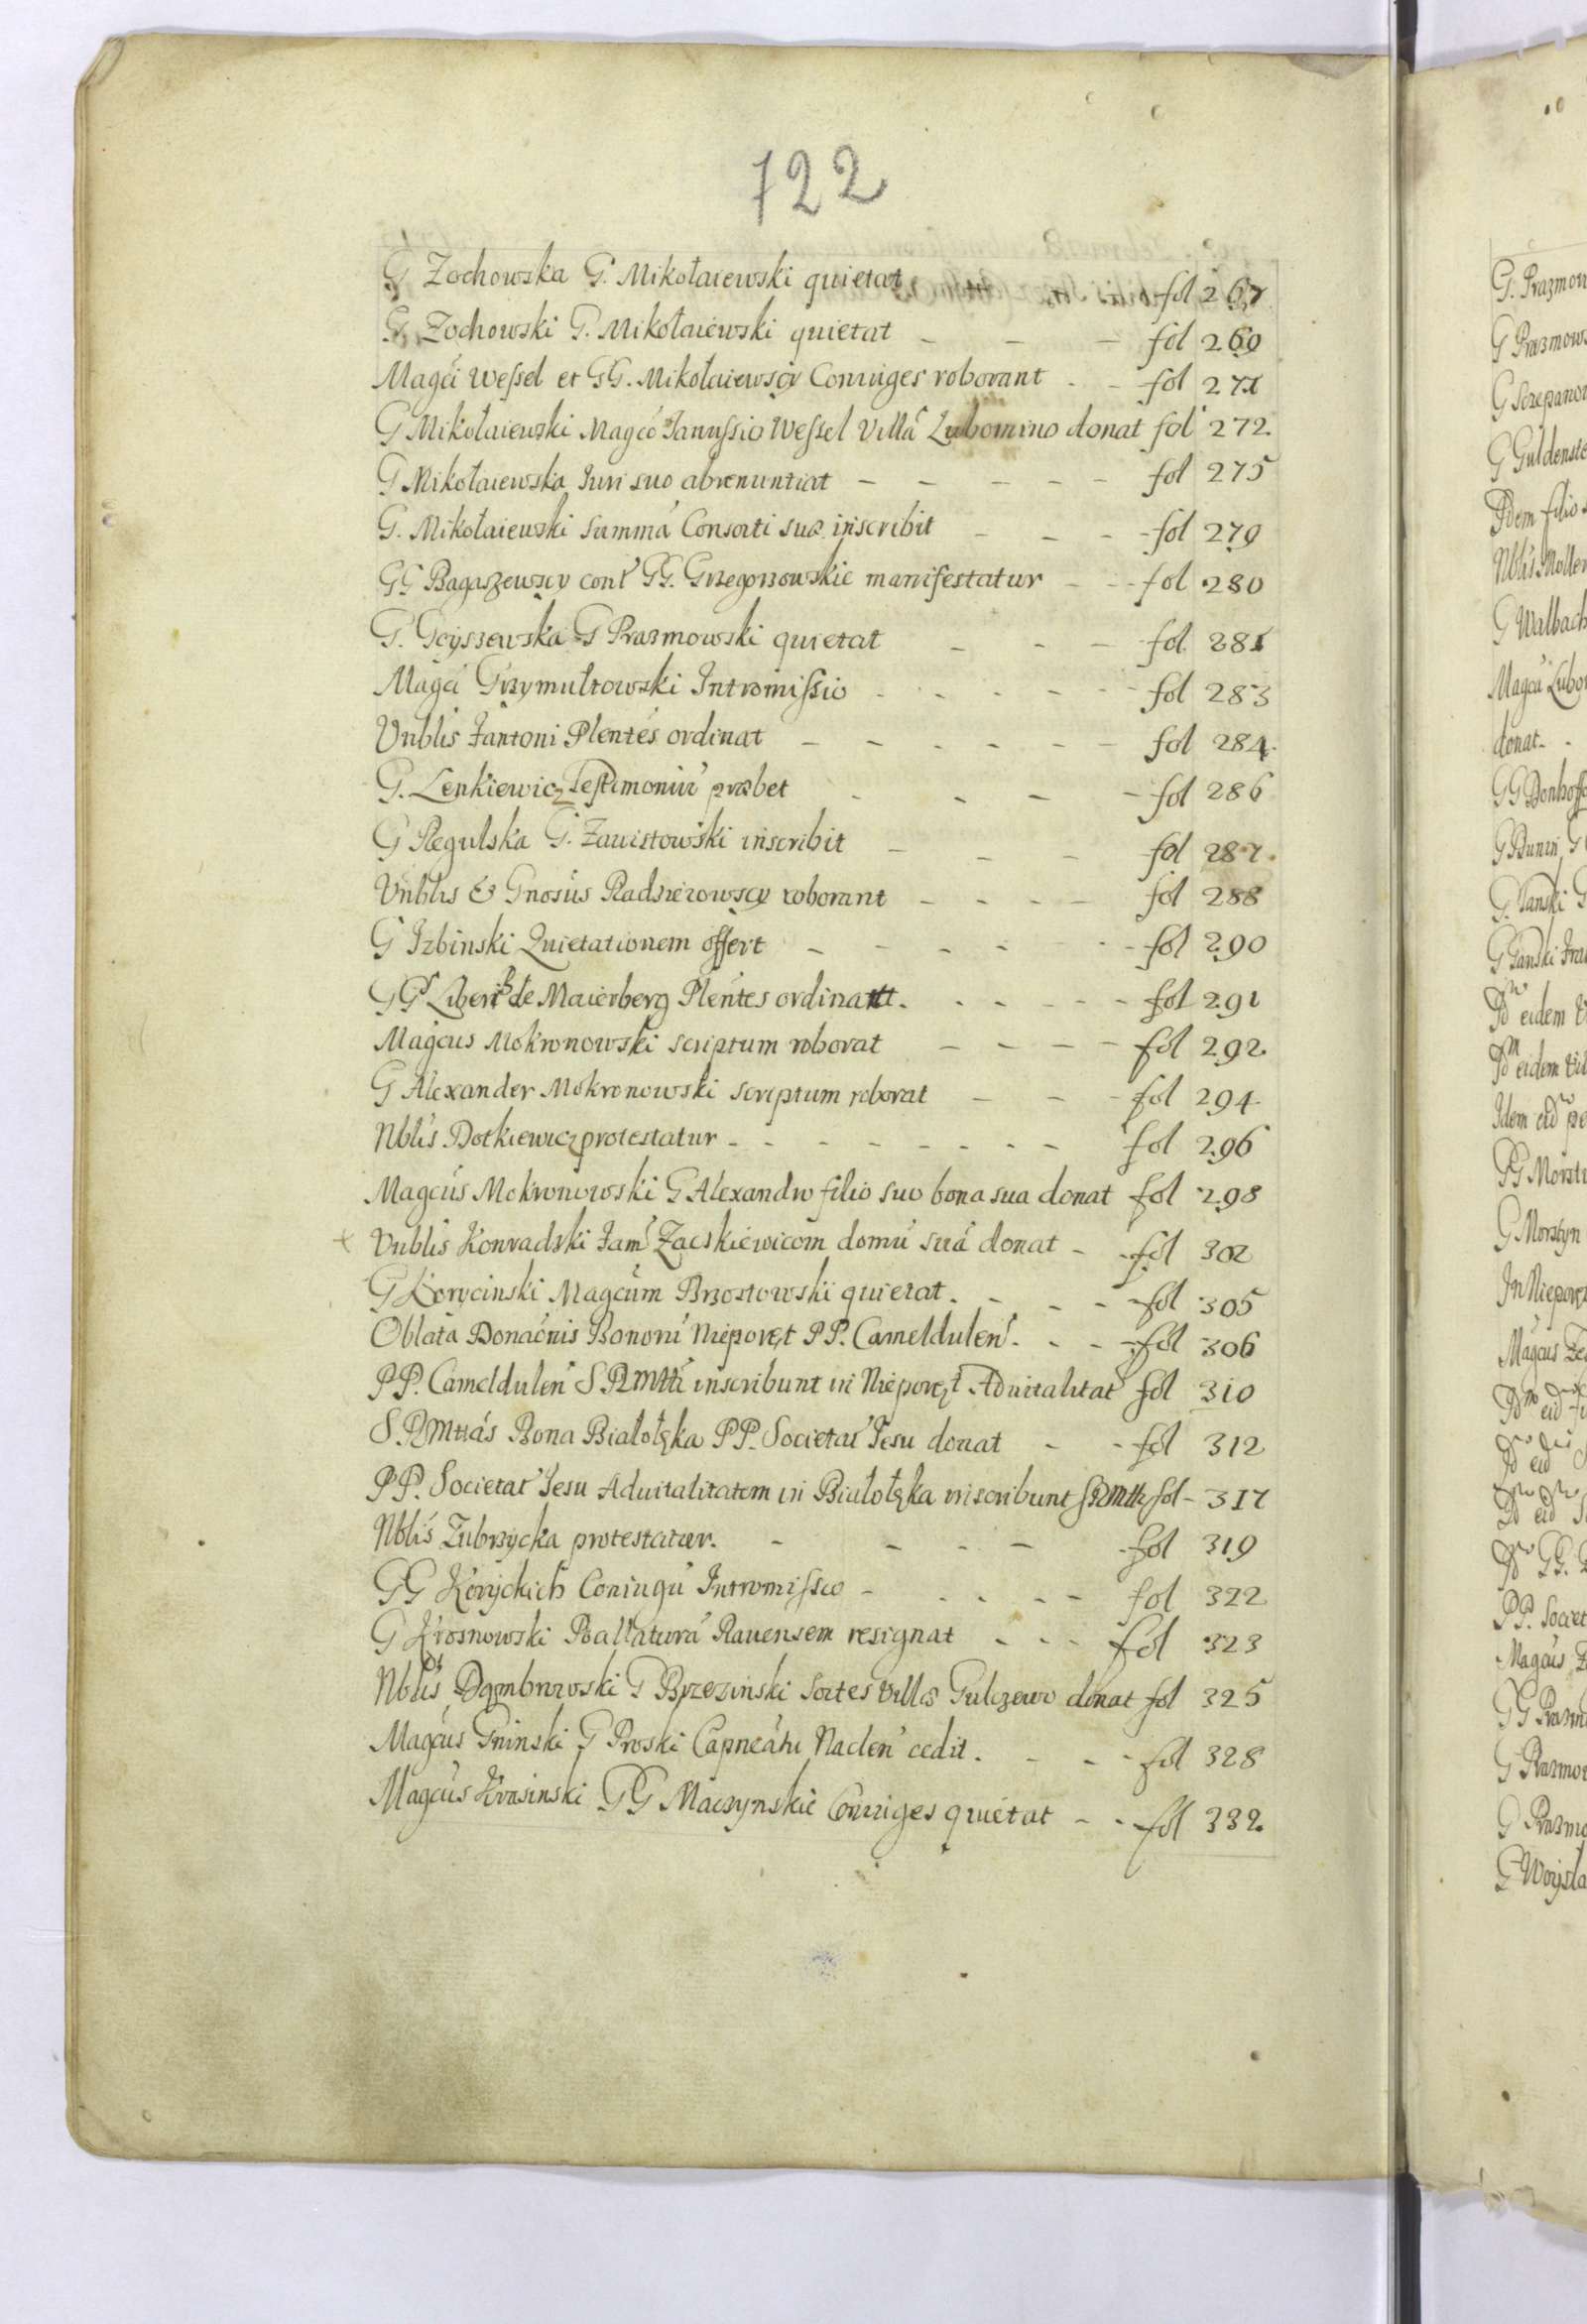 722
G Zochowska G. Mikołaiewski quietat fol 267
G. Zochowski G. Mikołaiewski quietat - - - fol 269
Magći Wessel et GG. Mikołaiewscy Coniuges roborant - - fol 271
G Mikołaiewski Magćo Ianussio Wessel Villā Lubomino donat fol 272
G Mikołaiewska Iuri suo abrenuntiat - - - - - fol 275
G. Mikołaiewski Summā Consorti suæ inscribit - - - fol 279
GG Bagaszewscy cont' GG. Grzegorzowskie manifestatur - - fol 280
G. Gcyszewska G Prazmowski quietat - - - fol 281
Magći Grzymułtowski Intromissio - - - - - fol 283
Vnblis Fantoni Plentes ordinat - - - - - - fol 284
G. Lenkiewicz Testimoniū præbet - - - - fol 286
G Regulska G. Zawistowski inscribit - - - fol 287
Vnblis & Gnosus Radzieiowscy roborant - - - - fol 288
G Izbinski Quietationem offert - - - - - fol 290
GG Liberi B de Maierberg Plentes ordinant. - - - - - fol 291
Magćus Mokronowski scriptum roborat - - - - fol 292
G Alexander Mokronowski scriptum roborat - - - fol 294
Nblis Dotkiewicz protestatur - - - - - - - - fol 296
Magćus Mokronowski G Alexandro filio suo bona sua donat fol 298
Vnblis Konradski Fam' Zacskiewicom domū suā donat - - fol 302
G Korycinski Magćum Brzostowski quietat. - - - fol 305
Oblata Donaćnis Bonorū Nieporęt PP. Cameldulen'. - - fol 306
PP. Cameldulen' S R Mtti inscribunt in Nieporęt Aduitalitat' fol 310
S. R Mttas Bona Białołęka PP. Societat' Iesu donat - - fol 312
PP. Societat' Iesu Aduitalitatem in Białołęka inscribunt S R Mtti fol - 317
Nblis Zubrzycka protestatur. - - - - - fol 319
GG Koryckich Coniugū Intromissio - - - - - fol 322
G Krosnowski Pallaturā Rauensem resignat - - - fol 323
Nblis Dąmbrowski G Brzezinski Sortes Villæ Gulczewo donat fol 325
Magćus Gninski G Proski Capneātū Naclen' cedit. - - - fol 328
Magćus Krasinski GG Mączynskie Coniuges quietat - - fol 332
G. Prazmow
G Prazmows
G Szczepanow
G Guldenste
Idem filio
Nblis Moller
G Walbach
Magća Lubo
donat - -
GG Donhoff
G Bunin G
G. Tanski G
G Tanski Fra
eidem
eidem
Idem
GG Morszt
G Morsztyn
In Nieporęt
Magćus
GG.
PP. Societ
Magćus
GG Prazm
G Prazmow
G Prazmo
G Woysla